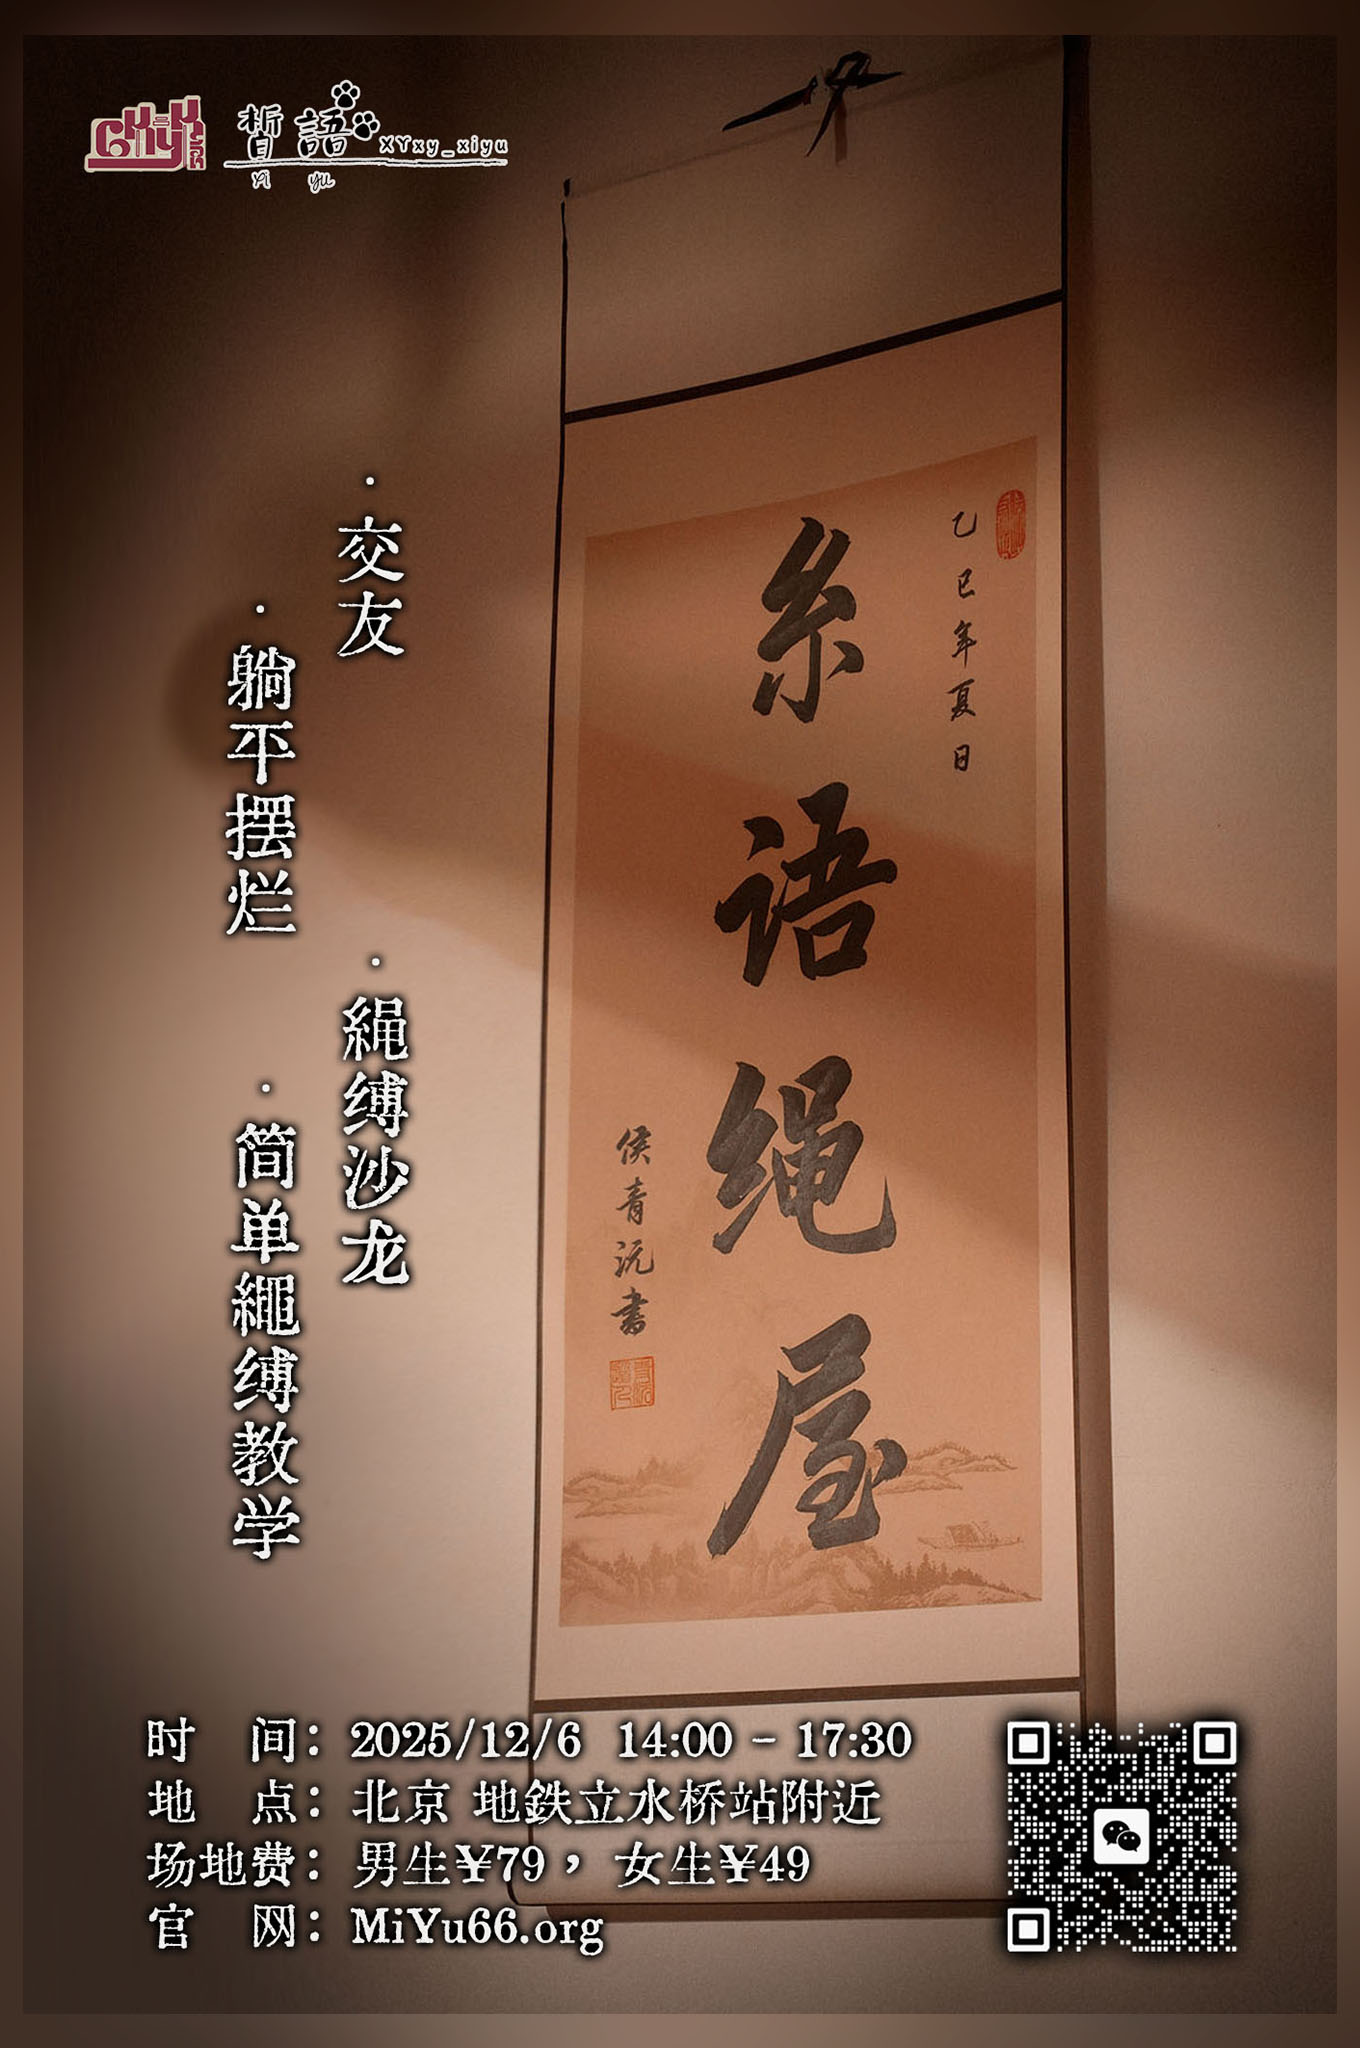 皙語
XYxy_xiyu
Xi yu
乙巳年夏日
糸语绳屋
侯青沅书
·交友
·躺平摆烂
·縄缚沙龙
·简单繩缚教学
时 间：2025/12/6 14:00 - 17:30
地 点：北京 地鉄立水桥站附近
场地费：男生¥79，女生¥49
官 网：MiYu66.org